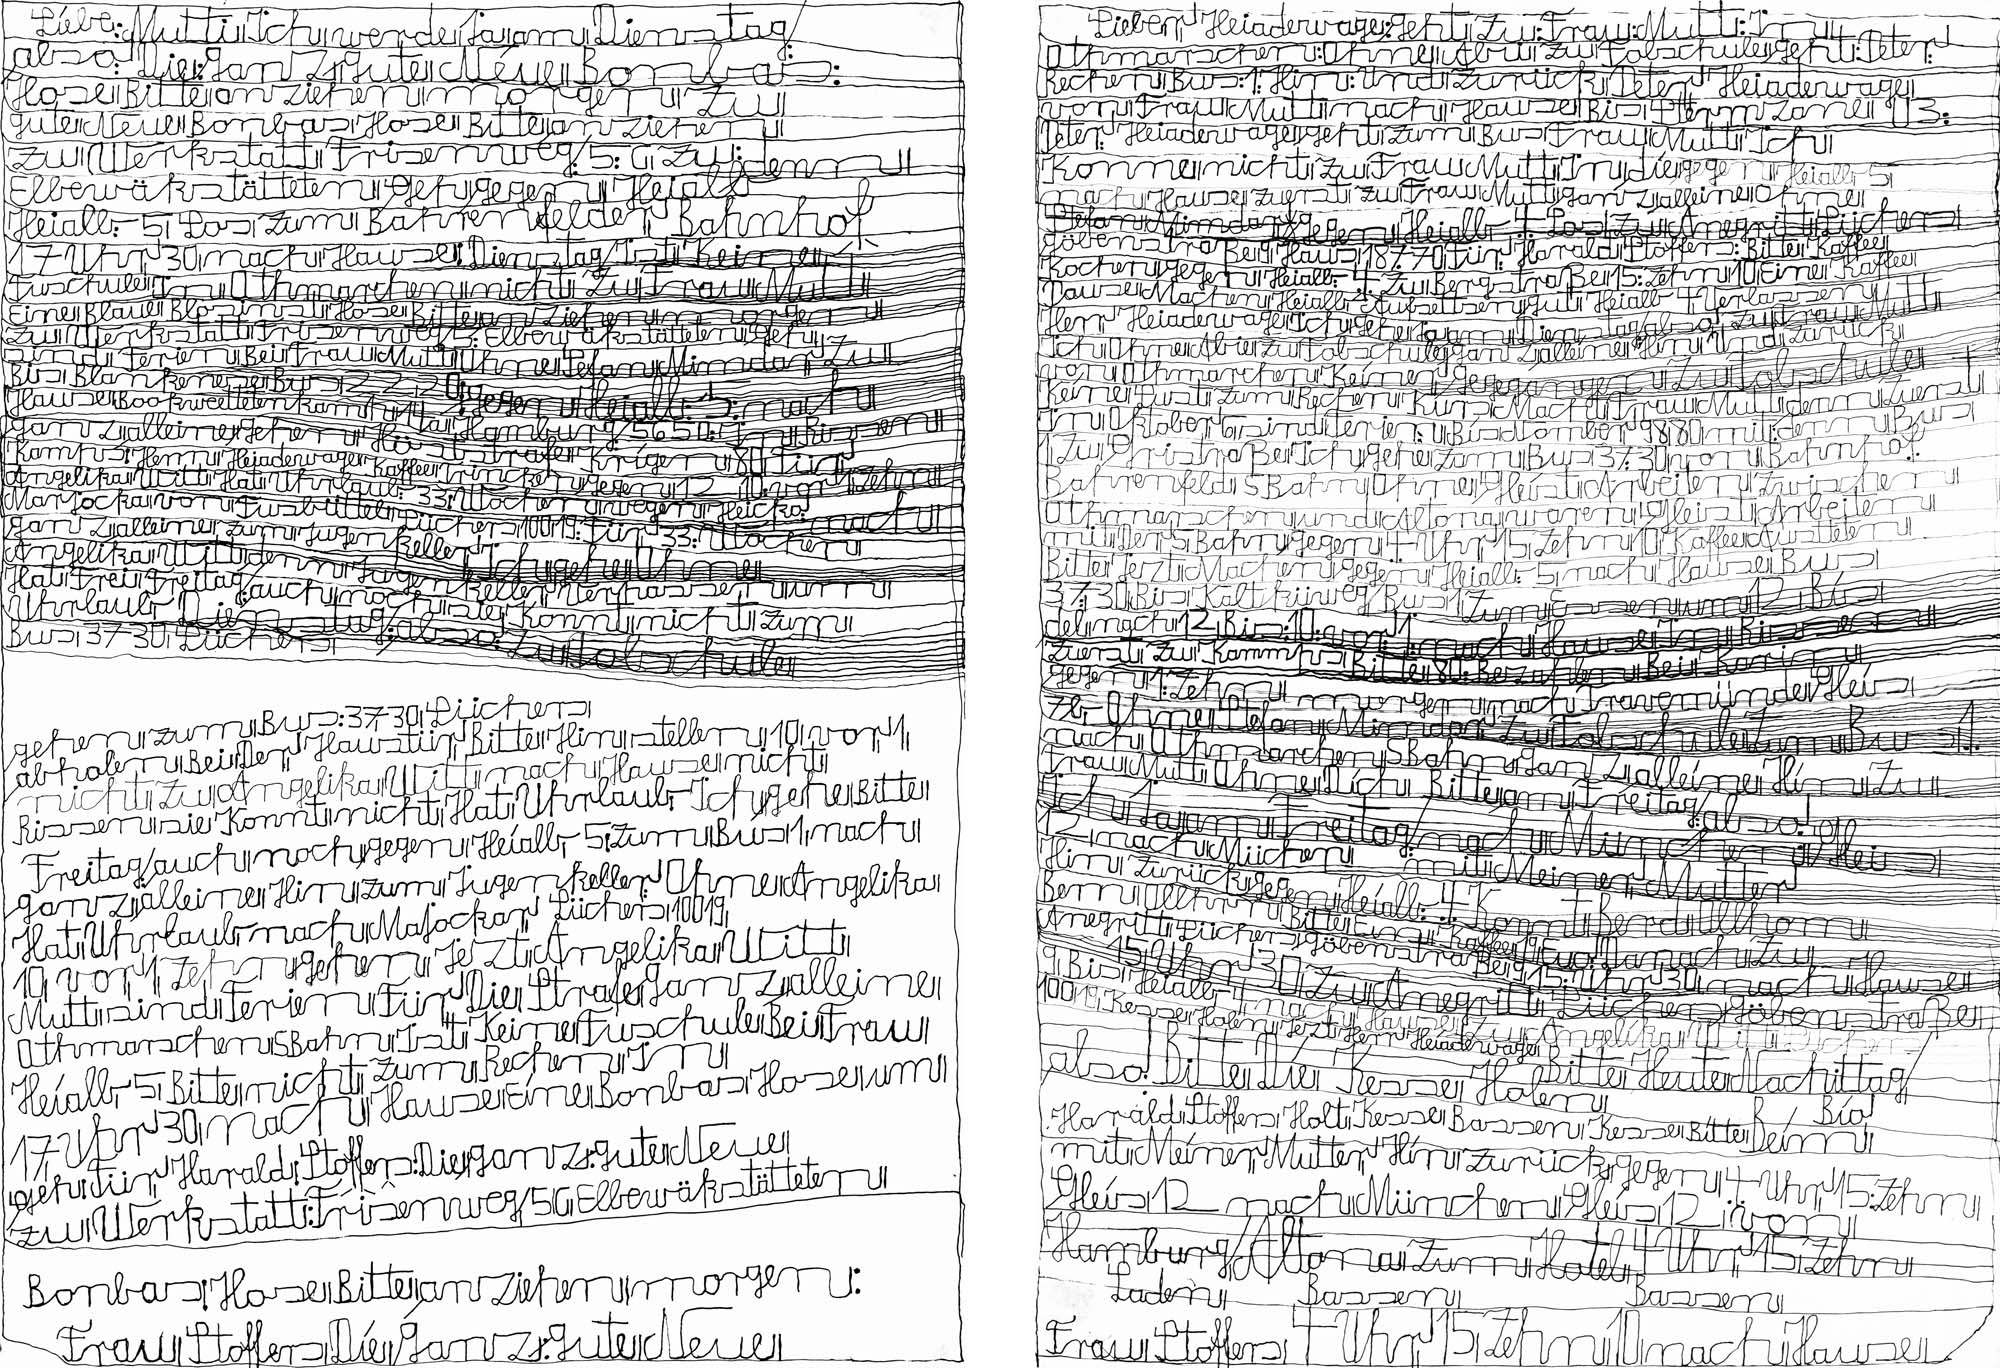 Liebe: Mutti Ich werde Ja am Dienstag
also: Die: Gan Zs: gute Neue Bonbas:
Hose Bitte an ziehen morgen Zu
gute Neue Bonbas Hose Bitte an ziehen
Zu Werkstatt Frisenweg 5: G Zu: denn
Elbewäkstätteten Geh gegen Heialb
Heialb 5 Los zum Bahrenfelder Bahnhof
17 Uhr 30 nach Hause: Dienstag Ist Keine
Fuschule In Othmarschen nicht Zu Frau Mutt
Eine Blaue Hose Bitte an ziehen morgen
zu Werkstatt Frisenweg 5: Elbewäkstätteten Geh
sind Ferien Bei Frau Mutt Ohne Stefan Mimdar Zu
Bis Blankenese Bus gegen Heialb 5: nach
Hause Hamburg 5650: In Rissen
gan Zalleine gehen Strafe Krigen 80 Für
Kamhs: Herrn Heiaderwage Kaffee Trincken gegen 12 10: vor 1 Zehn
Angelika Witt Hat Uhrlaub: 33: Wochen wegen
Lüchers 10019: Für 33: Wochen
gan Zalleine zum Jugenkeller Ich gehe Ohne
Angelika Witt denn Jugenkeller Verlassen um
Hat Frei Freitag auch noch sie Konnt nicht zum
Uhrlaub Dienstag: also: Zu Tobschule
Bus 37 30 Lüchers
gehen zum Bus: 37 30 Lüchers
abholen Bei Der Haustür Bitte Hin stellen 10 vor 1
nicht Zu Angelika Witt nach Hause nicht
Rissen sie Konnt nicht Hat Uhrlaub Ich gehe Bitte
Freitag auch noch gegen Heialb 5 Zum Bus 1 nach
gan Zalleine Hin zum Jugenkeller Ohne Angelika
Hat Uhrlaub nach Majockar Lüchers 10019
10 vor 1 Zehn gehen Jezt Angelika Witt
Mutt sind Ferien Für Die Strafe gan Zalleine
Othmarschen S Bahn Ist Keine Fuschule Bei Frau
Heialb 5 Bitte nicht Zum Rechen In
17 Uhr 30 nach Hause Eine Bonbas Hose um
geh Für Harald Stoffers: Die gan Zs: gute Neue
zu Werkstatt: Frisenweg 5G Elbewäkstätteten
Bonbas Hose Bitte an ziehen morgen:
Frau Stoffers Die Gan Zs: gute Neue
Lieber Heiaderwage: geht Zu: Frau: Mutt: In
Othmarschen: Ohne Abri zu Tobschule geht: Peter
Rechen: Bus: 1: Hin: Und Zurück Peter Heiaderwage
von Frau Mutt nach Hause Bis 13:
Peter Heiaderwage geht Zum Bus Frau Mutt Ich
Konne nicht Zu Frau Mutt In die gegen Heialb 5
nach Hause Zuerst zu Frau Mutt gan Zalleine Ohne
Stefan Mimdar gegen Heialb 4 Los Zu Anegritt Lüchers
göbenstraße Haus 18770 Für: Harald Stoffers: Bitte Kaffee
Kochen gegen Heialb 4 Zu Bergstraße 15: Zehn 10 Eine Kaffee
Pause Machen Heialb 4 Aufsetten gut Heialb 4 Verlassen
Herr Heiaderwage Ich gehe Ja am Dienstag also Zu Frau Mutt
Ich Ohne Abrie zu Tobschule gan Zalleine Hin Und zurück
von Othmarschen Keiner Gegegangen Zu Tobschule
Keine Lust Zum Rechen Kurs Macht Frau Mutt denn Zuerst
Im Oktober 6 sind Ferien: Bis Nomber 1988 mit denn Bus
1 Zu Ich gehe zum Bus 37:30 von Bahnhof
Bahrenfeld S Bahn Ohne Gleist Arbeiten Zwischen
Othmarschen und Altona waren Gleist Arbeiten
mit Der S Bahn gegen 4 Uhr 15 Zehn 10 Kaffee
Bitte Jezt Machen gegen Heialb 5 nach Hause Bus
37:30 Bis Bus 1 Zum Essen um 12 Bis
nach 12 Bis: 10: vor 1 nach Hause In Rissen
Zuerst Zu Kammhs Bitte 80: Bezahlen Bei Karin
gegen 1: Zehn morgen nach Travemünde Gleis
7b Ohne Stefan Mimdar Zu Tobschule Zum Bus 1
nach Othmarschen S Bahn gan Zalleine Hin Zu
Frau Mutt Ohne Dich Bitte am Freitag also!
Ich Ja am Freitag nach München Gleis
12 nach Müchen mit Meiner Mutter
Hin Zurück gegen Heialb 4 Konnt Berd Ullhorn
Bern Ullhrn Bitte Ein Kaffee Danach Zu
Anegritt Lüchers göbenstraße 9 15: Uhr 30 nach Hause
15 Uhr 30 Zu Anegritt Lüchers Göbenstraße
9 Bis Heialb 4 nach Hause Zu Angelika Witt
10019: Kesse Holen Jezt Herr Heiaderwage
also! Bitte Die Kesse Holen Bitte Heute Nachittag
Harald Stoffers Holt Kesse Bassen Kesse Bitte Beim
mit Meiner Mutter Hin Zurück gegen 4 Uhr 15: Zehn
Gleis 12 nach München Gleis 12 von
Hamburg Altona Zum Hotel 4 Uhr 15 Zehn
Laden Bassen Bassen
Frau Stoffers 4 Uhr 15 Zehn 10 nach Hause